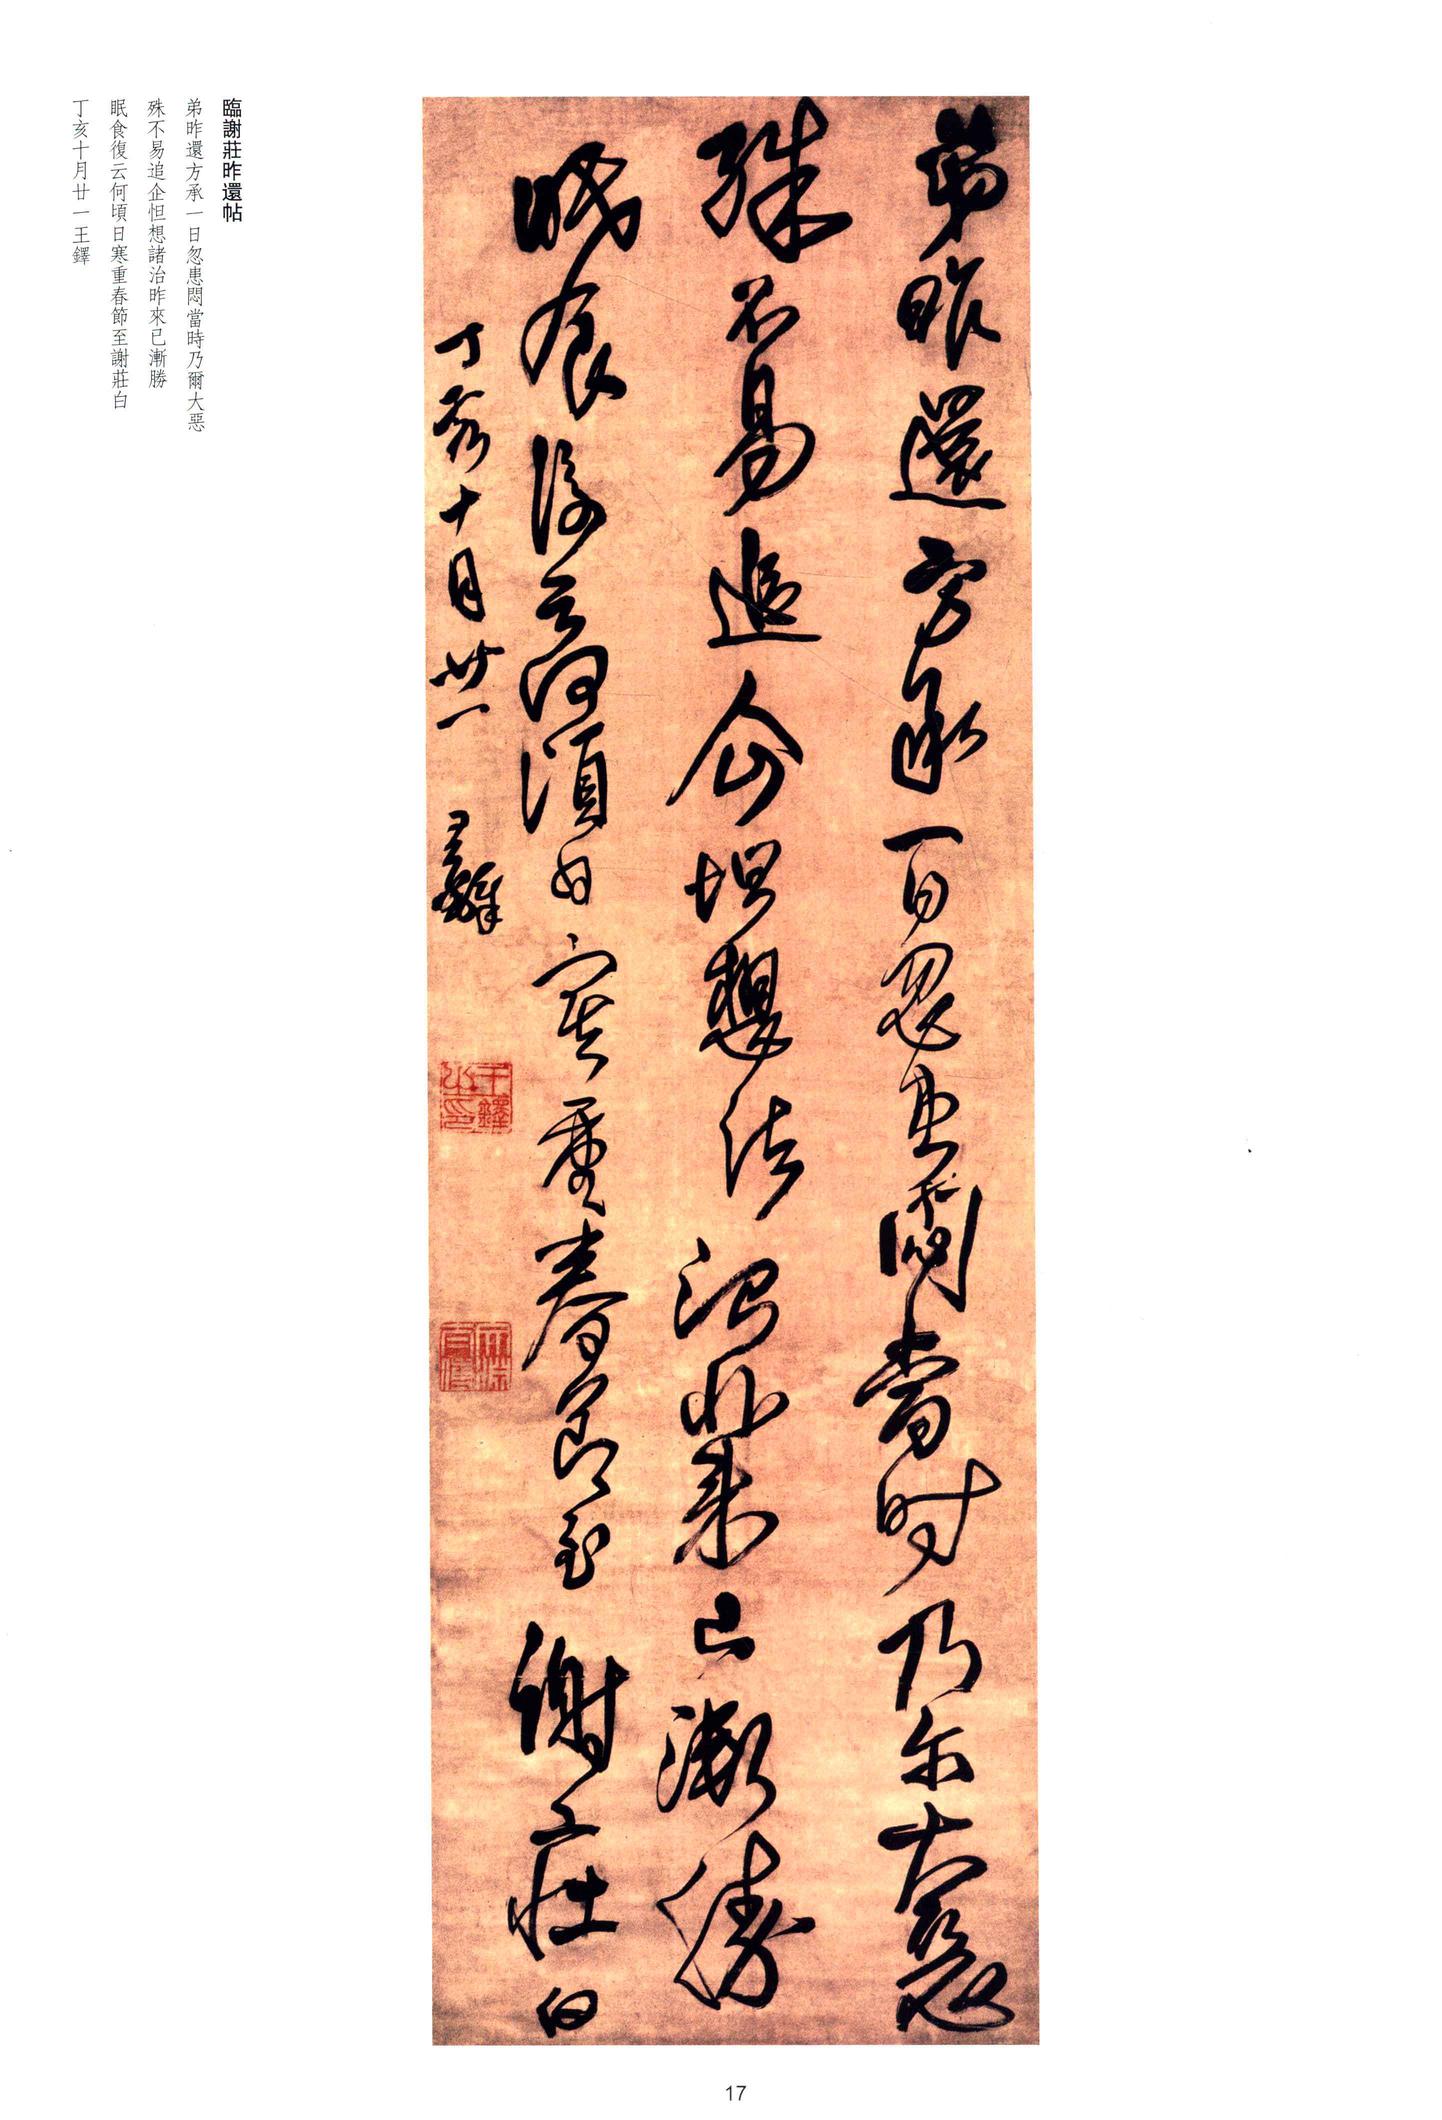 臨謝莊昨還帖
弟昨還方承一日忽患悶當時乃爾大惡
殊不易追企怛想諸治昨來已漸勝
眠食復云何頃日寒重春節至謝莊白
丁亥十月廿一王鐸
弟昨還方承一日忽患悶當時乃尔大惡
殊不易追企怛想諸治昨來已漸勝
眠食復云何頃日寒重春節至謝莊白
丁亥十月廿一王鐸
王鐸之印
17